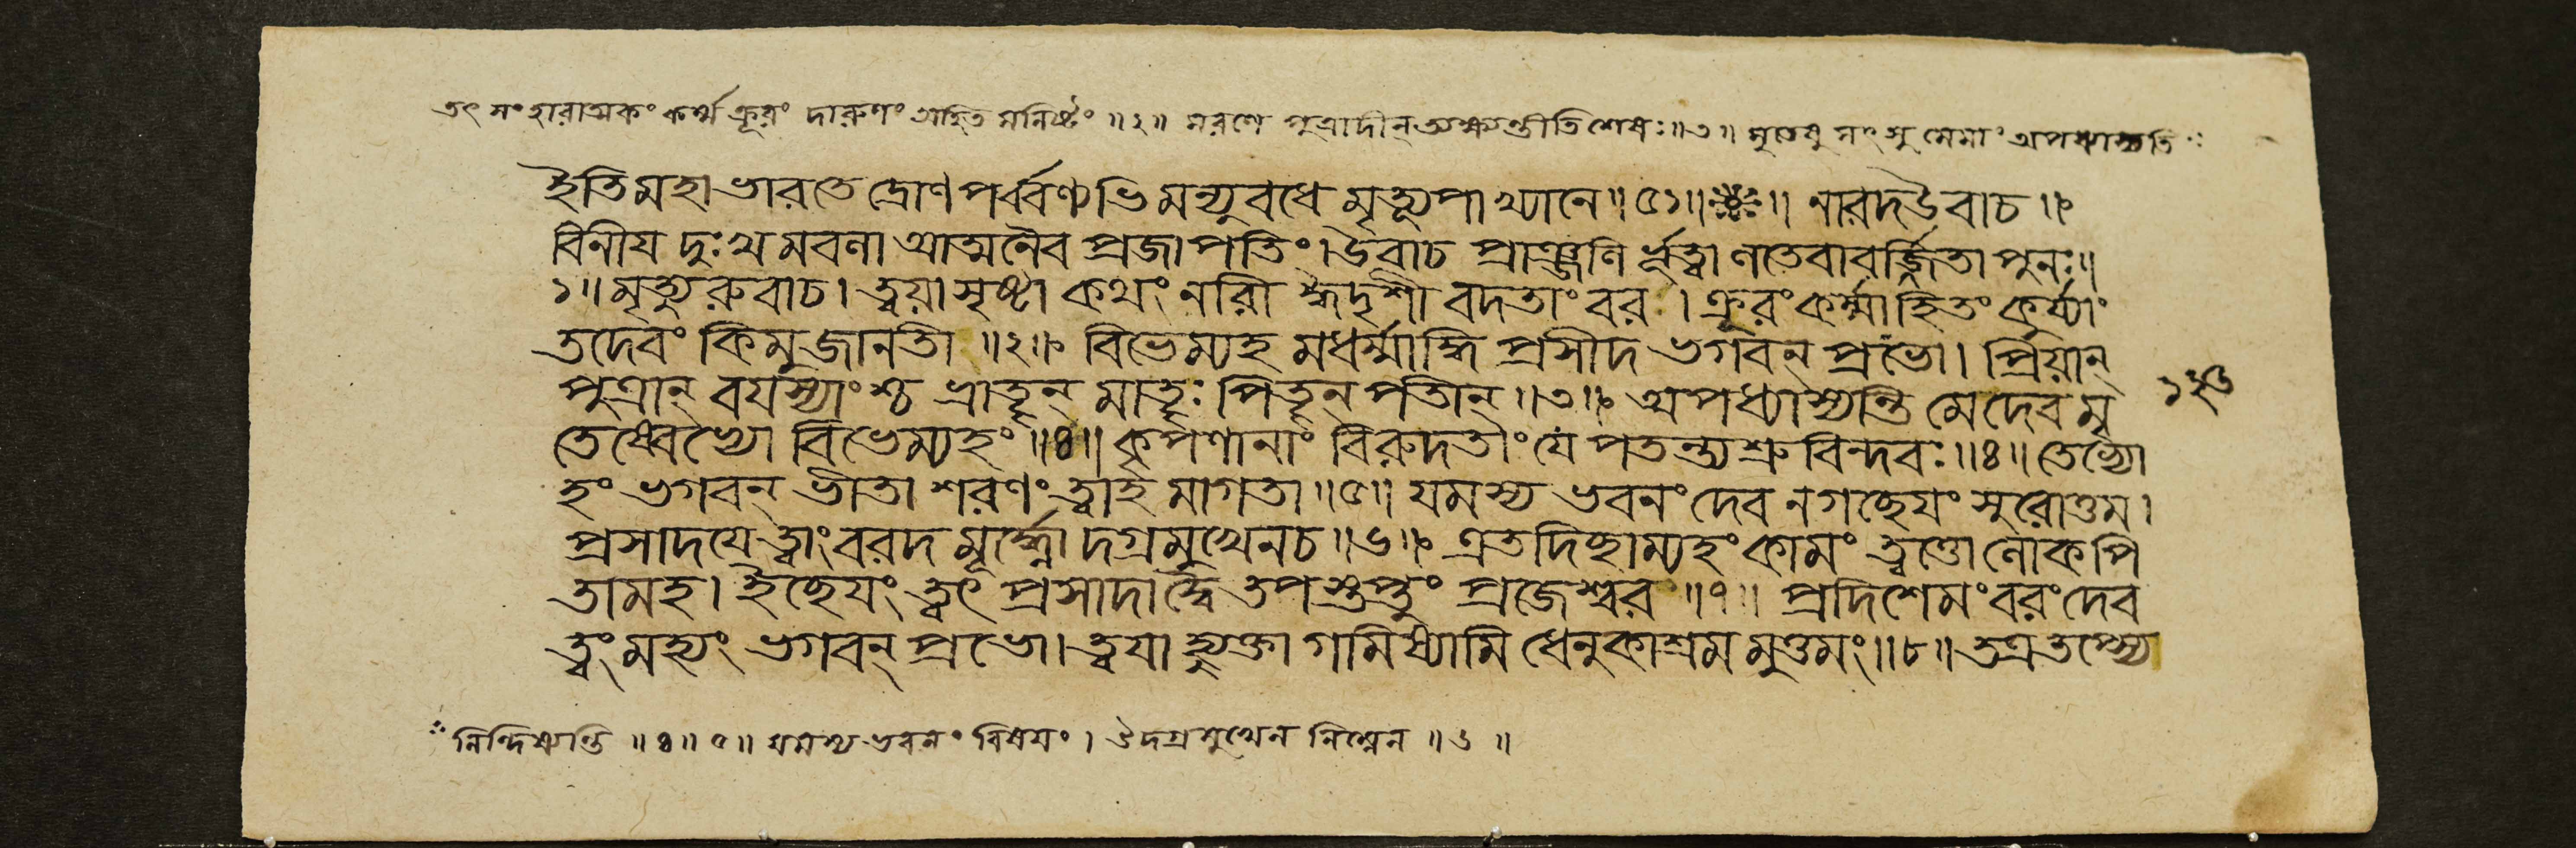 তৎ সংহারাত্মকং কর্ম্ম ক্রূরং দারুণং অহিতমনিষ্টং ॥২॥ মরণে পুত্রাদীন্ ত্যক্ষ্যন্তীতি শেষঃ ॥৩॥ মৃতেষু সৎসু মেমাং অপধ্যাস্যতি
ইতি মহাভারতে দ্রোণপর্ব্বণ্যভিমন্যুবধে মৃত্যুপাখ্যানে ॥৫১॥ ॥ নারদ উবাচ ॥
বিনীয দুঃখমবলা আত্মনৈব প্রজাপতিং। উবাচ প্রাঞ্জলির্ভূত্বা লতেবাবর্জ্জিতা পুনঃ॥
১॥ মৃত্যুরুবাচ। ত্বয়া সৃষ্টা কথং নারী হ্যীদৃশী বদতাং বর। ক্রূরং কর্ম্মাহিতং কর্য্যাং
তদেবং কিমু জানতী ॥২॥ বিভেম্যহমধর্ম্মাদ্ধি প্রসীদ ভগবন্ প্রভো। প্রিয়ান্
পুত্রান্ বযস্যাংশ্চ ভ্রাতৄন্ মাতৄঃ পিতৄন্ পতীন্ ॥৩॥ অপধ্যাস্যন্তি মে দেব মৃ ১২৩
তেষ্বেভ্যো বিভেম্যহং ॥৪॥ কৃপণানাং বিরুদতাং যে পতন্ত্যশ্রুবিন্দবঃ ॥৪॥ তেভ্যো
হং ভগবন্ ভীতা শরণং ত্বাহমাগতা ॥৫॥ যমস্য ভবনং দেব ন গচ্ছেযং সুরোত্তম।
প্রসাদযে ত্বাং বরদ মূর্দ্ধ্নো দগ্রমুখেন চ ॥৬॥ এতদিচ্ছাম্যহং কামং ত্বত্তো লোকপি
তামহ। ইচ্ছেযং ত্বৎপ্রসাদাদ্বৈ তপস্তপ্তুং প্রজেশ্বর ॥৭॥ প্রদিশেমং বরং দেব
ত্বং মহ্যং ভগবন্ প্রভো। ত্বযা হ্যুক্তা গমিষ্যামি ধেনুকাশ্রমমুত্তমং ॥৮॥ তত্র তপ্স্যে
নিন্দিষ্যন্তি ॥৪॥৫॥ যমস্য ভবনং বিষযং। উদগ্রমুখেন নিম্নেন ॥৬॥